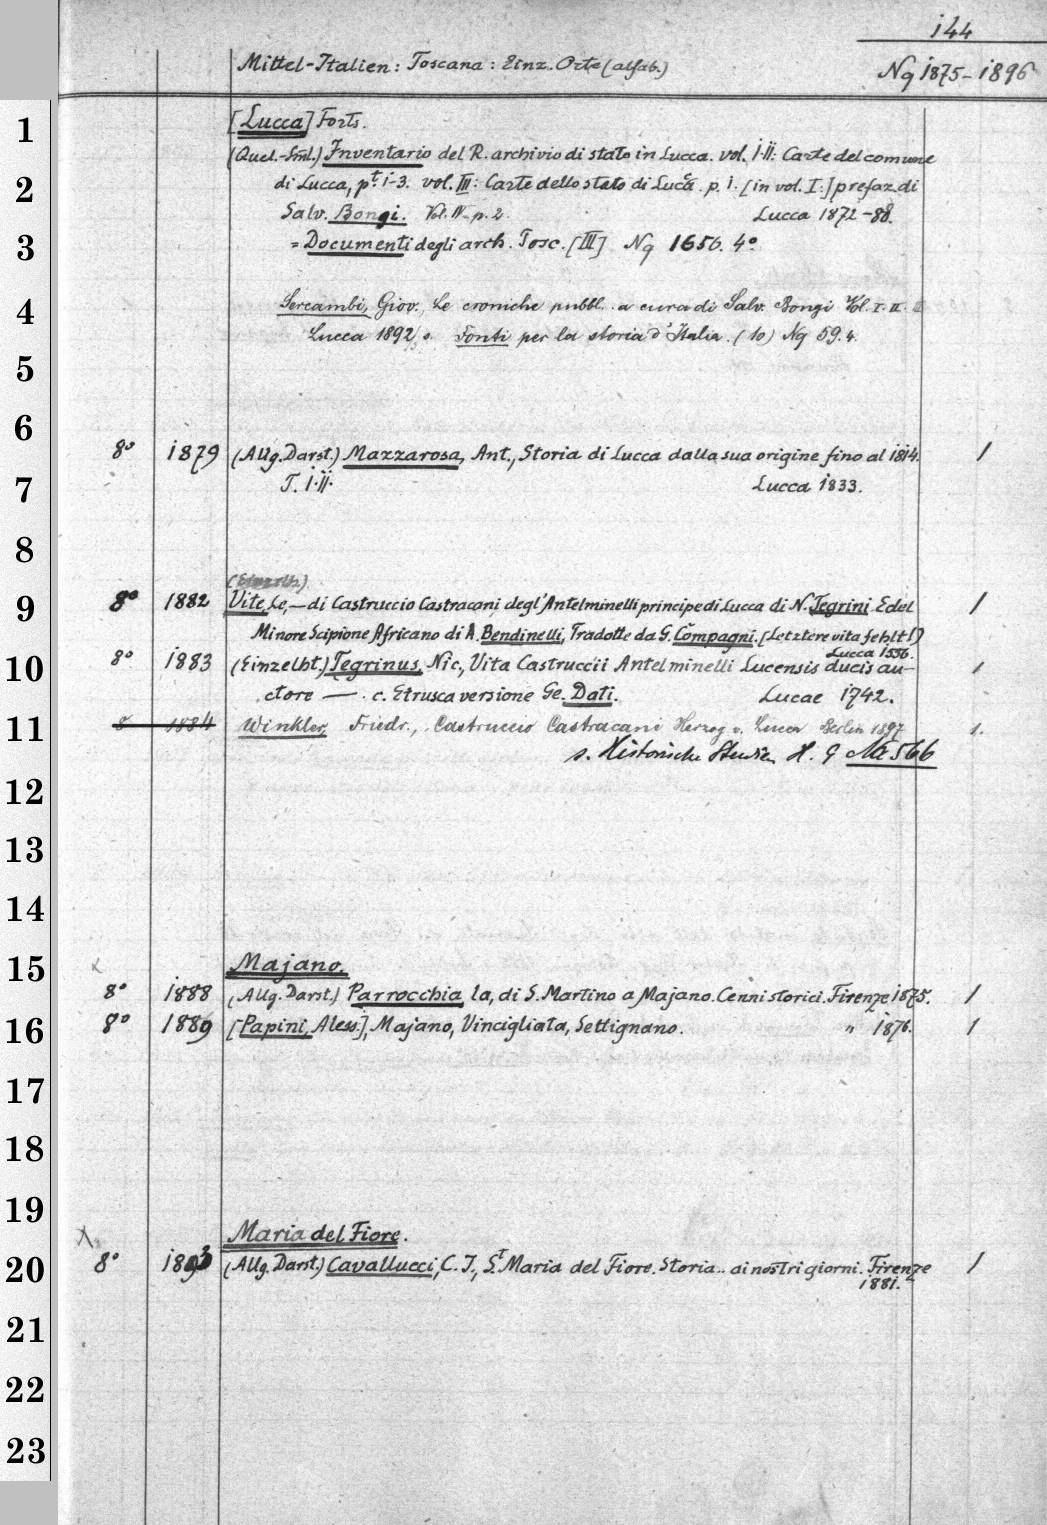 144
Mittel-Italien: Toscana: Einz. Orte (alfab.) Nq 1875-1896
1 [Lucca] Forts.
(Quel.-Sml.) Inventario del R. archivio di stato in Lucca. vol. I-II: Carte del comune
2 di Lucca, pt. 1-3. vol. III: Carte dello stato di Lucca. p. 1. [in vol. I:] prefaz. di
Salv. Bongi. Vol. IV p. 2. Lucca 1872-88.
3 = Documenti degli arch. Tosc. [III] Nq 1656. 4°
4 Sercambi, Giov., Le croniche pubbl. a cura di Salv. Bongi Vol. I. II. III
Lucca 1892, s. Fonti per la storia d'Italia. (10) Nq 59.4.
5
6
8° 1879 (Allg. Darst.) Mazzarosa, Ant., Storia di Lucca dalla sua origine fino al 1814. 1
7 T. I.II. Lucca 1833.
8
(Einzelh.)
9 8° 1882 Vite, Le, — di Castruccio Castracani degl'Antelminelli principe di Lucca di N. Tegrini. E del 1
Minore Scipione Africano di A. Bendinelli, Tradotte da G. Compagni. [Letztere vita fehlt!]
Lucca 1556.
10 8° 1883 (Einzelht.) Tegrinus, Nic, Vita Castruccii Antelminelli Lucensis ducis au- 1
ctore —. c. Etrusca versione Ge. Dati. Lucae 1742.
11 8 1884 Winkler, Friedr., Castruccio Castracani Herzog v. Lucca Berlin 1897 1.
s. Historische Studien H. 9 Na 566
12
13
14
15 Majano.
8° 1888 (Allg. Darst.) Parrocchia, la, di S. Martino a Majano. Cenni storici. Firenze 1875. 1
16 8° 1889 [Papini, Aless.], Majano, Vincigliata, Settignano. " 1876. 1
17
18
19
Maria del Fiore.
20 8° 1893 (Allg. Darst.) Cavallucci, C. J., St. Maria del Fiore. Storia.. ai nostri giorni. Firenze 1
1881.
21
22
23